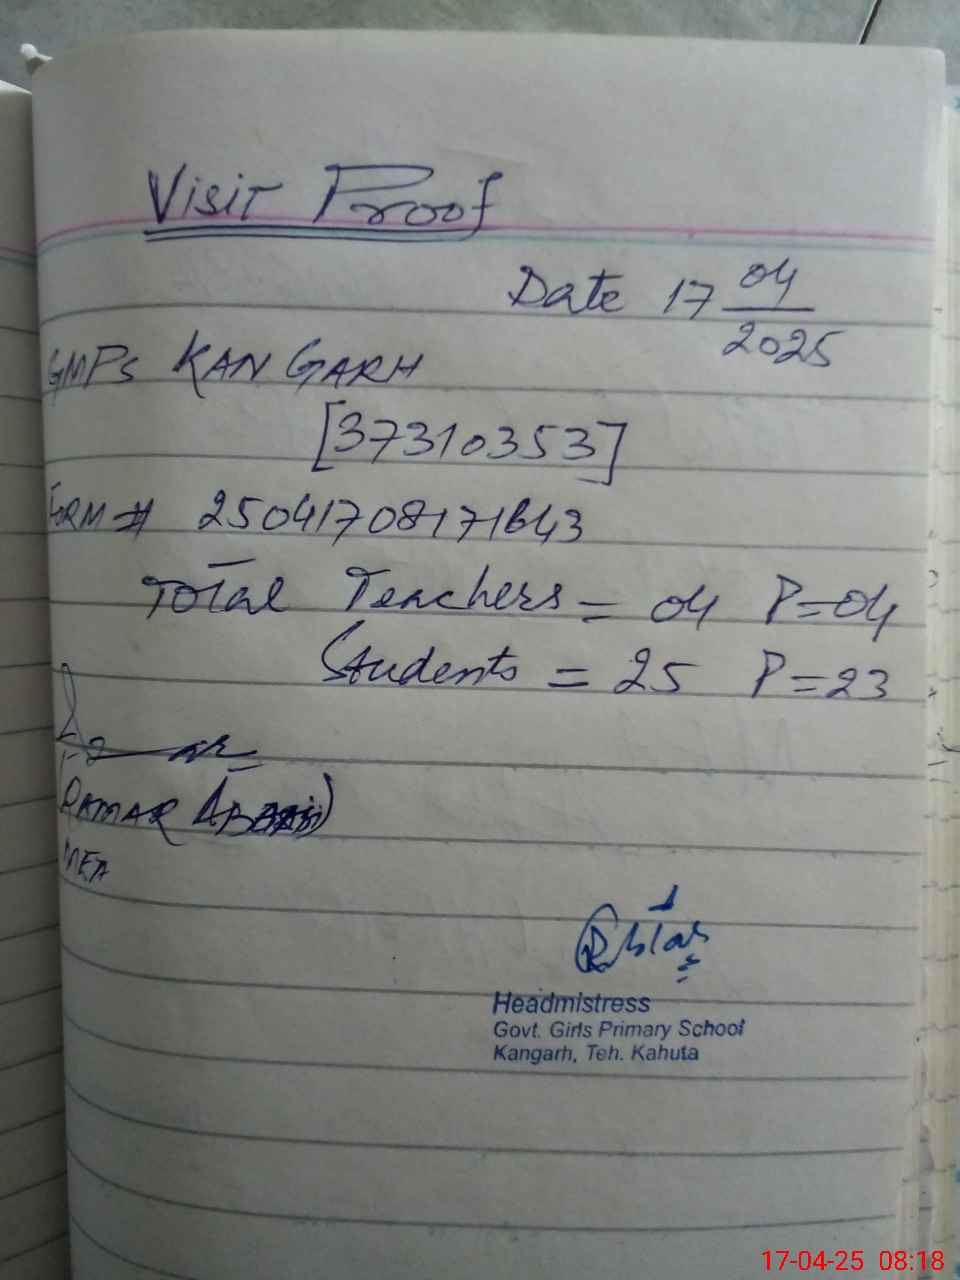 Visit Proof
Date 17 04/2025
GMPS KANGARH
[37310353]
FORM # 25041708171643
Total Teachers = 04 P=04
Students = 25 P=23
MEA
Headmistress
Govt. Girls Primary School
Kangarh, Teh. Kahuta
17-04-25 08:18